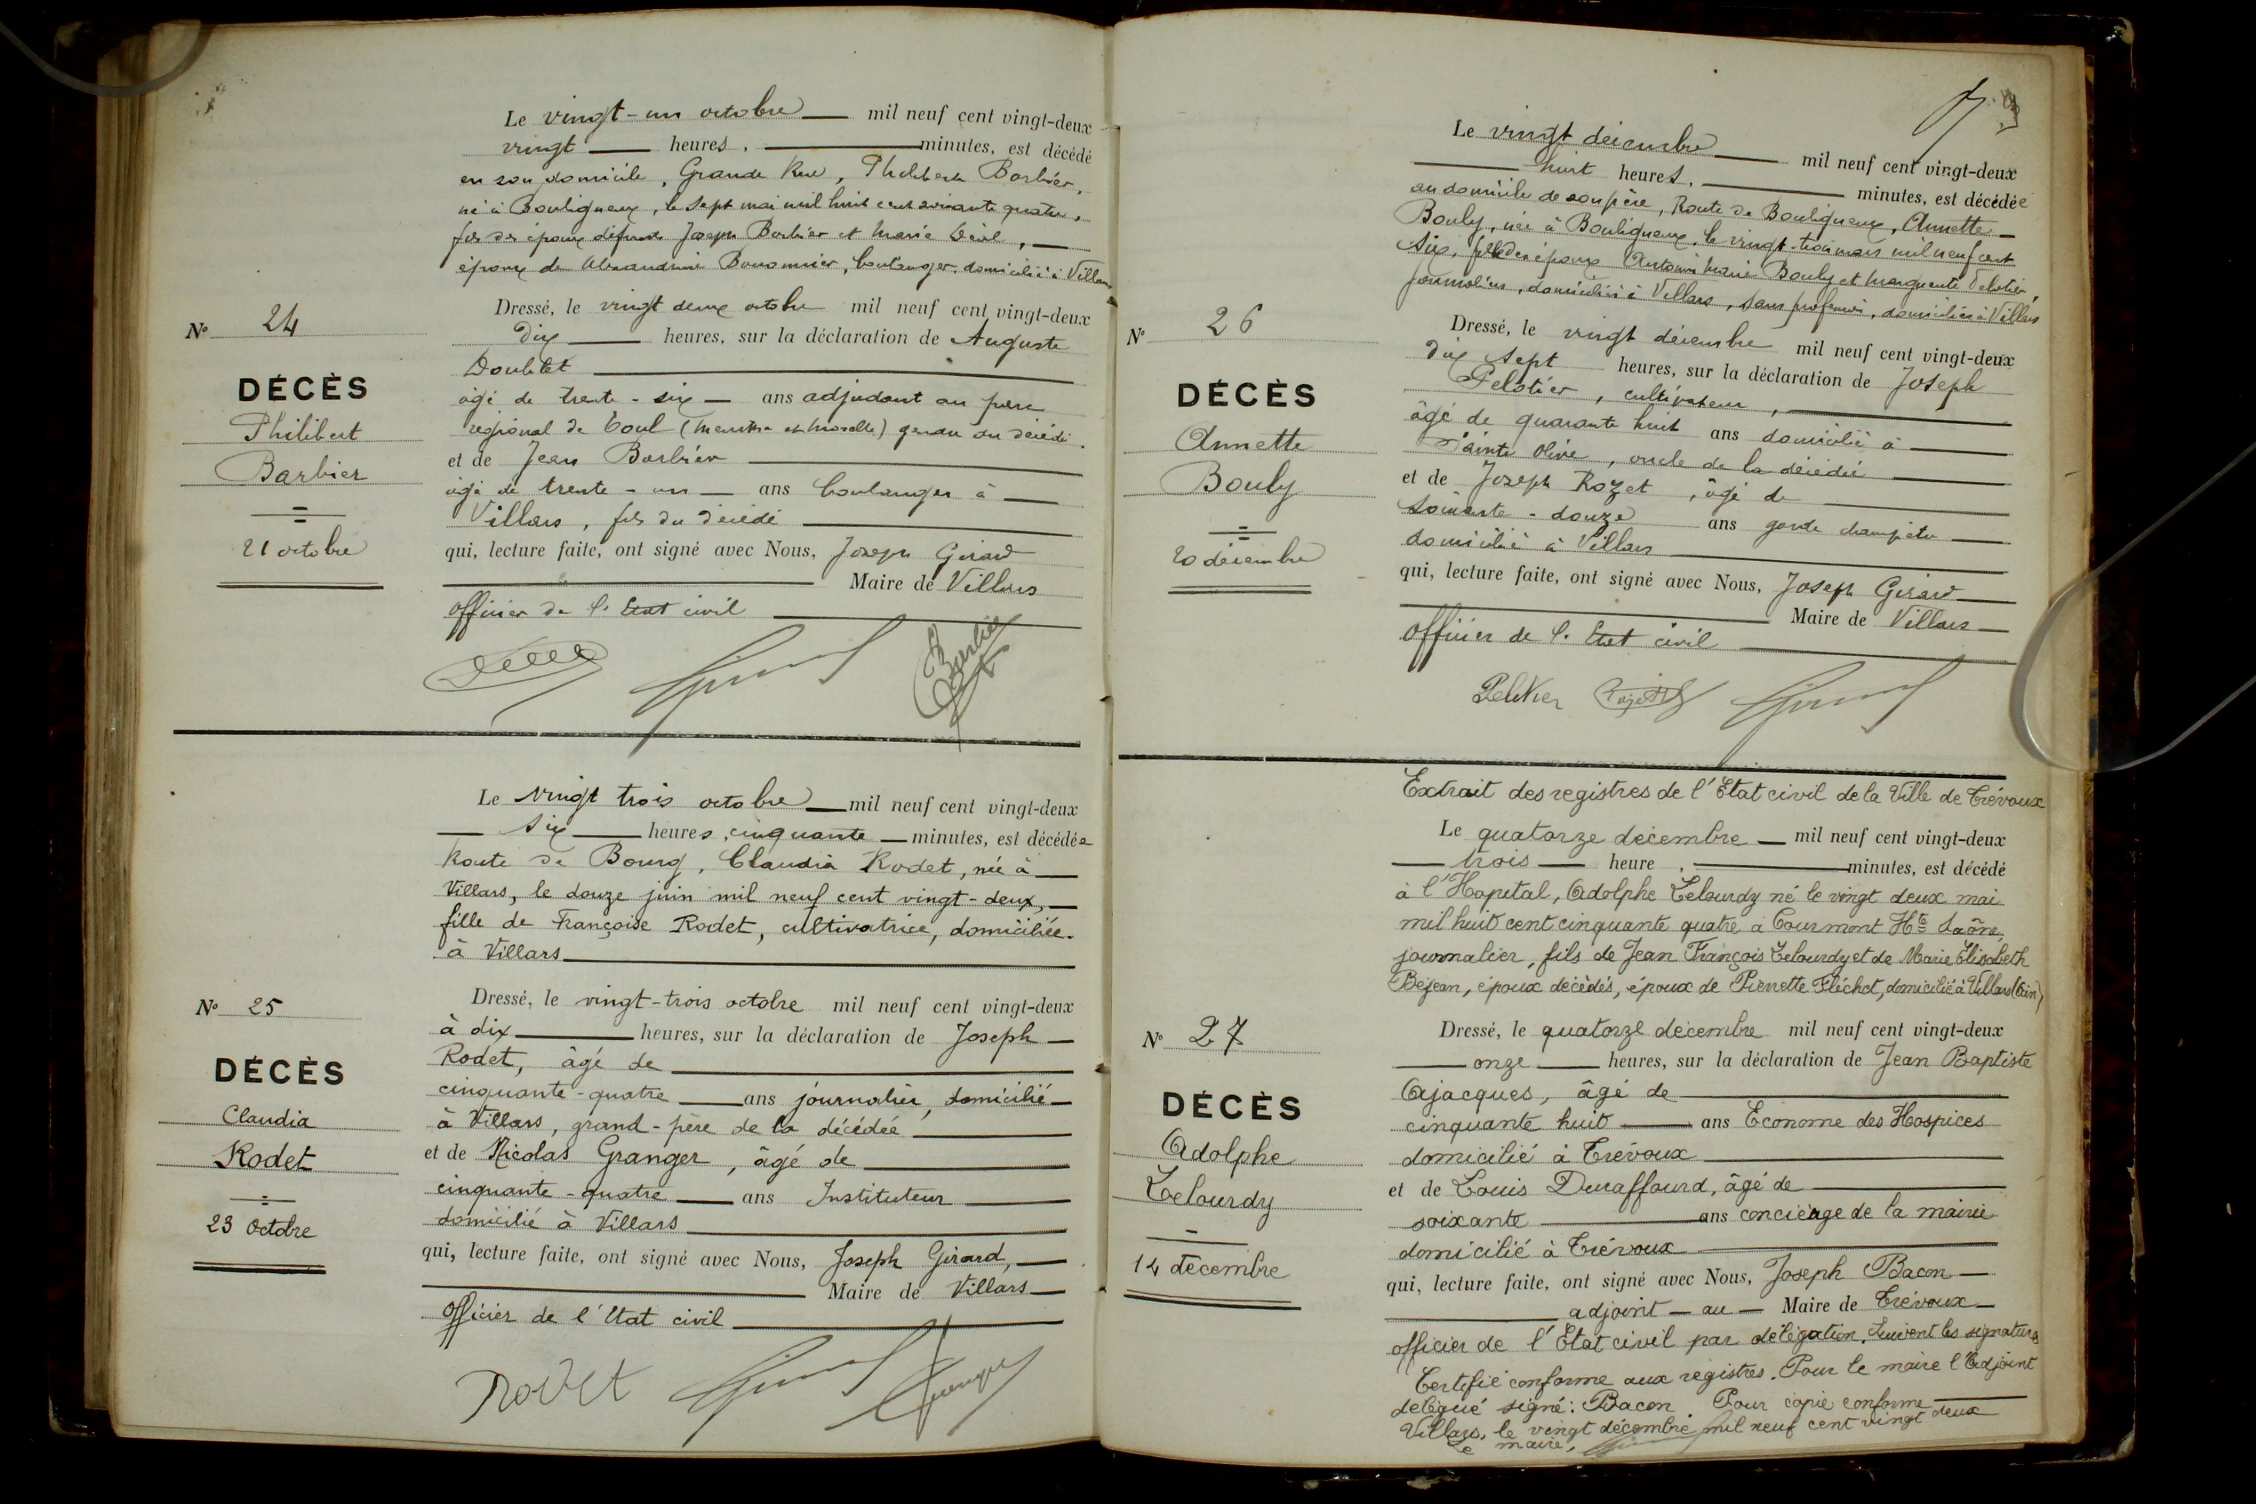 Le vingt-un octobre mil neuf cent vingt-deux
vingt heures, minutes, est décédé
en son domicile, Grande Rue, Philibert Barbier,
né à Bouligneux, le sept mai mil huit cent soixante quatre,
fils des époux défunts Joseph Barbier et Marie
époux de Alexandrine Bononnier, boulanger, domicilié à Villars
Dressé, le vingt deux octobre mil neuf cent vingt-deux
dix heures, sur la déclaration de Auguste
Doublet
âgé de trente-six ans adjudant au parc
régional de Toul (Meurthe et Moselle) gendre du décédé
et de Jean Barbier
âgé de trente-un ans boulanger à
Villars, fils du décédé
qui, lecture faite, ont signé avec Nous, Joseph Girard
Maire de Villars
officier de l'Etat civil
Barbier
N° 24
DÉCÈS
Philibert
Barbier
21 octobre
Le vingt trois octobre mil neuf cent vingt-deux
six heures, cinquante minutes, est décédée
Route de Bourg, Claudia Rodet, née à
Villars, le douze juin mil neuf cent vingt-deux,
fille de Françoise Rodet, cultivatrice, domiciliée
à Villars
Dressé, le vingt-trois octobre mil neuf cent vingt-deux
à dix heures, sur la déclaration de Joseph
Rodet, âgé de
cinquante-quatre ans journalier, domicilié
à Villars, grand-père de la décédée
et de Nicolas Granger, âgé de
cinquante-quatre ans Instituteur
domicilié à Villars
qui, lecture faite, ont signé avec Nous, Joseph Girard,
Maire de Villars
officier de l'Etat civil
Rodet
N° 25
DÉCÈS
Claudia
Rodet
23 Octobre
Le vingt décembre mil neuf cent vingt-deux
huit heures, minutes, est décédée
au domicile de son père, Route de Bouligneux, Annette
Bouly, née à Bouligneux, le vingt-trois mars mil neuf cent
six, fille des époux Antoine Marie Bouly et Marguerite Pelotier,
journaliers, domiciliés à Villars, sans profession, domiciliée à Villars
Dressé, le vingt décembre mil neuf cent vingt-deux
dix sept heures, sur la déclaration de Joseph
Pelotier, cultivateur,
âgé de quarante huit ans domicilié à
Sainte Olive, oncle de la décédée
et de Joseph Rozet, âgé de
soixante-douze ans garde champêtre
domicilié à Villars
qui, lecture faite, ont signé avec Nous, Joseph Girard
Maire de Villars
officier de l'Etat civil
Pelotier
N° 26
DÉCÈS
Annette
Bouly
20 décembre
Extrait des registres de l'Etat civil de la Ville de Trévoux
Le quatorze décembre mil neuf cent vingt-deux
trois heure, minutes, est décédé
à l'Hopital, Adolphe Lelourdy né le vingt deux mai
mil huit cent cinquante quatre à Courmont Hte Saône,
journalier, fils de Jean François Lelourdy et de Marie Elisabeth
Béjean, époux décédés, époux de Pierrette Fléchet, domicilié à Villars (Ain)
Dressé, le quatorze décembre mil neuf cent vingt-deux
onze heures, sur la déclaration de Jean Baptiste
Ajacques, âgé de
cinquante huit ans Econome des Hospices
domicilié à Trévoux
et de Louis Duraffourd, âgé de
soixante ans concierge de la mairie
domicilié à Trévoux
qui, lecture faite, ont signé avec Nous, Joseph Bacon
adjoint au Maire de Trévoux
officier de l'Etat civil par délégation. Suivent les signatures
Certifié conforme aux registres. Pour le maire l'Adjoint
délégué signé: Bacon Pour copie conforme
Villars, le vingt décembre mil neuf cent vingt deux
Le maire,
N° 27
DÉCÈS
Adolphe
Lelourdy
14 décembre